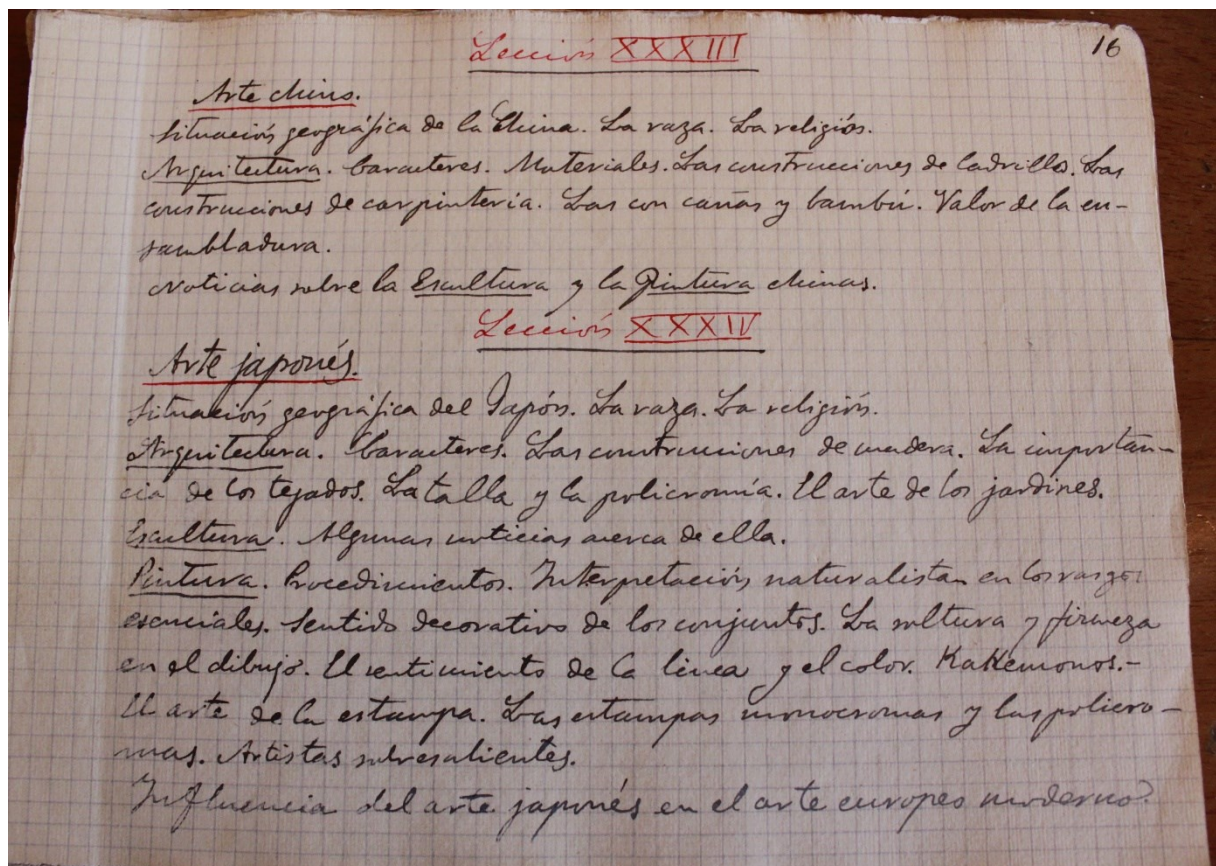 16
Lección XXXIII
Arte chino.
Situación geográfica de la China. La raza. La religión.
Arquitectura. Caracteres. Materiales. Las construcciones de ladrillo. Las
construcciones de carpintería. Las con cañas y bambú. Valor de la en-
sambladura.
Noticias sobre la Escultura y la Pintura chinas.
Lección XXXIV
Arte japonés.
Situación geográfica del Japón. La raza. La religión.
Arquitectura. Caracteres. Las construcciones de madera. La importan-
cia de los tejados. La talla y la policromía. El arte de los jardines.
Escultura. Algunas noticias acerca de ella.
Pintura. Procedimientos. Interpretación naturalista en los rasgos
esenciales. Sentido decorativo de los conjuntos. La soltura y firmeza
en el dibujo. El sentimiento de la línea y el color. Kakemonos.-
El arte de la estampa. Las estampas monocromas y las policro-
mas. Artistas sobresalientes.
Influencia del arte japonés en el arte europeo moderno.